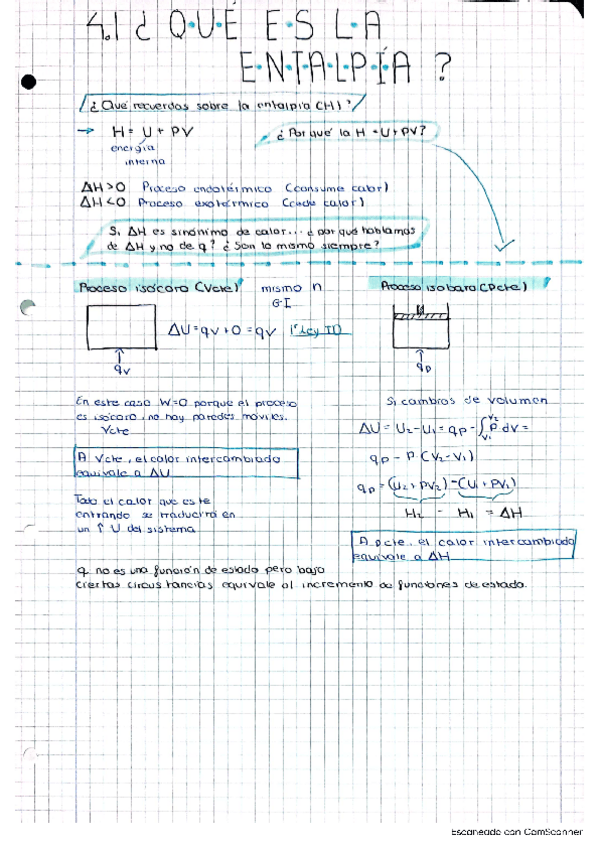 4.1 ¿QUÉ ES LA
ENTALPÍA?
¿Qué recuerdas sobre la entalpía (H)?
→ H = U + PV
energía
interna
¿Por qué la H = U + PV?
ΔH>0 Proceso endotérmico (consume calor)
ΔH<0 Proceso exotérmico (cede calor)
Si ΔH es sinónimo de calor... ¿por qué hablamos
de ΔH y no de q? ¿Son lo mismo siempre?
Proceso isócoro (Vcte)
mismo n
G.I
Proceso isobaro (Pcte)
ΔU = qv + 0 = qv (1ª Ley TD)
qv
qp
En este caso W=0 porque el proceso
es isócoro, no hay paredes móviles.
Vcte
A Vcte, el calor intercambiado
equivale a ΔU
Todo el calor que esté
entrando se traducirá en
un ↑ U del sistema
Si cambios de volumen
ΔU = U2 - U1 = qp - ∫V1V2 P dV =
qp - P (V2 - V1)
qp = (U2 + PV2) - (U1 + PV1)
H2 - H1 = ΔH
A pcte, el calor intercambiado
equivale a ΔH
q no es una función de estado pero bajo
ciertas circustancias equivale al incremento de funciones de estado.
Escaneado con CamScanner